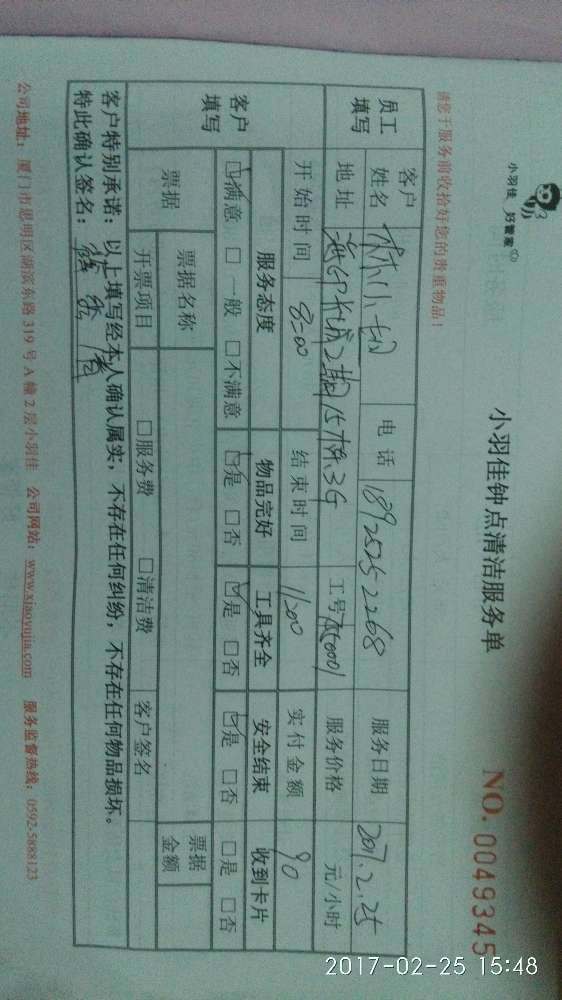 小羽佳 好管家
小羽佳钟点清洁服务单
NO. 0049345
请您于服务前收拾好您的贵重物品!
员工填写 客户姓名 林小姐 电话 18925252268 服务日期 2017.2.25
地址 2期15栋3G 工号 服务价格 元/小时
开始时间 8:00 结束时间 11:00 实付金额 90
客户填写 服务态度 物品完好 工具齐全 安全结束 收到卡片
☑满意 □一般 □不满意 ☑是 □否 ☑是 □否 ☑是 □否 □是 □否
票据 票据名称 票据金额
开票项目 □服务费 □清洁费 客户签名
客户特别承诺:以上填写经本人确认属实,不存在任何纠纷,不存在任何物品损坏。
特此确认签名:
公司地址:厦门市思明区湖滨东路319号A幢2层小羽佳 公司网站:www.xiaoyujia.com 服务监督热线:0592-5888123
2017-02-25 15:48